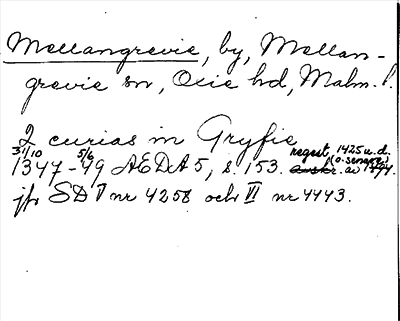 Mellangrevie, by, Mellan-
grevie sn, Oxie hd, Malm. l.
2 curias in Gryfie
31/10 1347 - 5/6 49 AEDA 5, s. 153. regest, 1425 u.d. (o. senare)
av 1494.
jfr SD V nr 4258 och VI nr 4443.